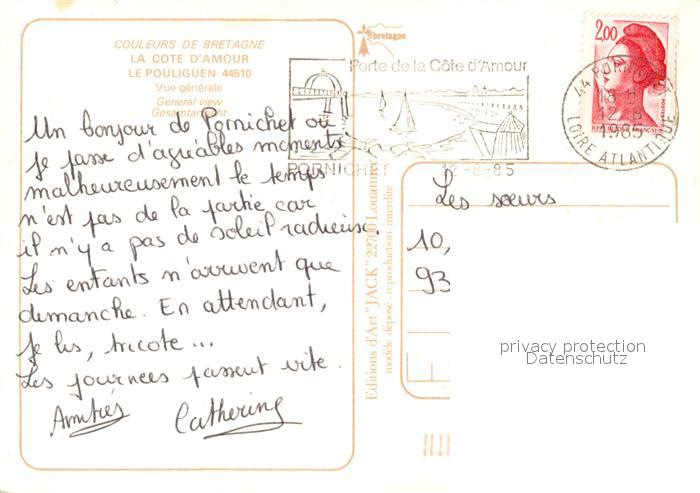 COULEURS DE BRETAGNE
LA COTE D'AMOUR
LE POULIGUEN 44510
Vue générale
General view
Gesamtansicht
Un bonjour de Pornichet où
je passe d'agréables moments
malheureusement le temps
n'est pas de la partie car
il n'y a pas de soleil radieuse.
Les enfants n'arrivent que
dimanche. En attendant,
je lis, tricote ...
Les journées passent vite.
Amitiés Catherine
bretagne
Porte de la Côte d'Amour
PORNICHET 12-8-85
2,00
REPUBLIQUE FRANÇAISE
44 PORNICHET
18 H
12 - 8
1985
LOIRE ATLANTIQUE
Editions d'Art "JACK" 22700 Louannec
modèle déposé - reproduction interdite
Les sœurs
10,
93
privacy protection
Datenschutz